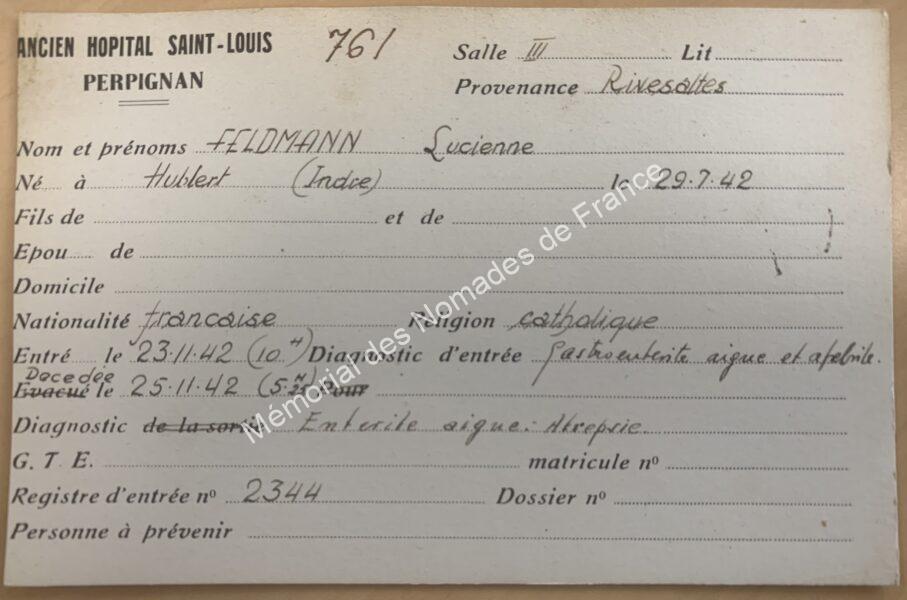 ANCIEN HOPITAL SAINT-LOUIS 761 Salle III Lit
PERPIGNAN Provenance Rivesaltes
Nom et prénoms FELDMANN Lucienne
Né à Hublert (Indre) le 29.7.42
Fils de et de
Epou de
Domicile
Nationalité française Religion catholique
Entré le 23.11.42 (10 H) Diagnostic d'entrée gastroenterite aigue et
Decedée
Evacué le 25.11.42 (5 H 25) Pour
Diagnostic de la sortie Enterite aigue. Atrepsie.
G. T. E. matricule nº
Registre d'entrée nº 2344 Dossier nº
Personne à prévenir
Mémorial des Nomades de France